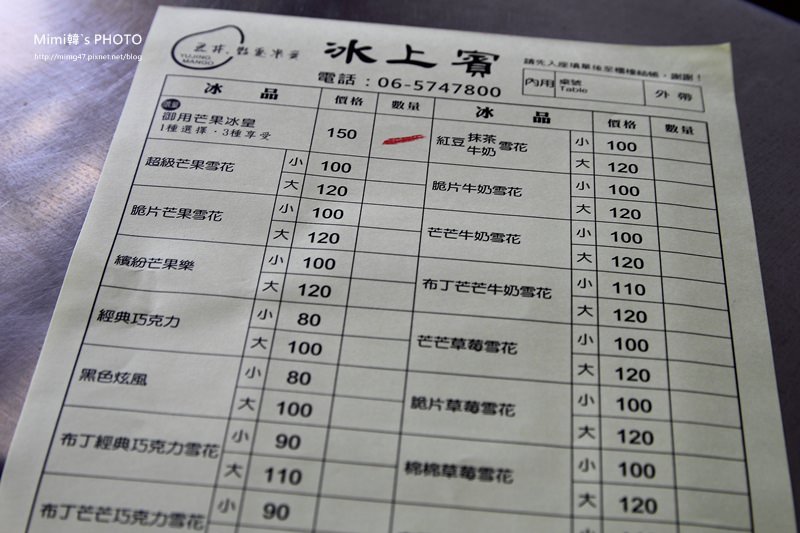 Mimi韓`s PHOTO
http://mimg47.pixnet.net/blog
YUJING
MANGO
冰上賓
電話：06-5747800
請先入座填單後至櫃檯結帳，謝謝！
內用 桌號 Table 外帶
冰品 價格 數量
御用芒果冰皇 150
1種選擇．3種享受
超級芒果雪花 小 100
大 120
脆片芒果雪花 小 100
大 120
繽紛芒果樂 小 100
大 120
經典巧克力 小 80
大 100
黑色炫風 小 80
大 100
布丁經典巧克力雪花 小 90
大 110
布丁芒芒巧克力雪花 小 90
冰品 價格 數量
紅豆抹茶牛奶雪花 小 100
大 120
脆片牛奶雪花 小 100
大 120
芒芒牛奶雪花 小 100
大 120
布丁芒芒牛奶雪花 小 110
大 120
芒芒草莓雪花 小 100
大 120
脆片草莓雪花 小 100
大 120
棉棉草莓雪花 小 100
大 120